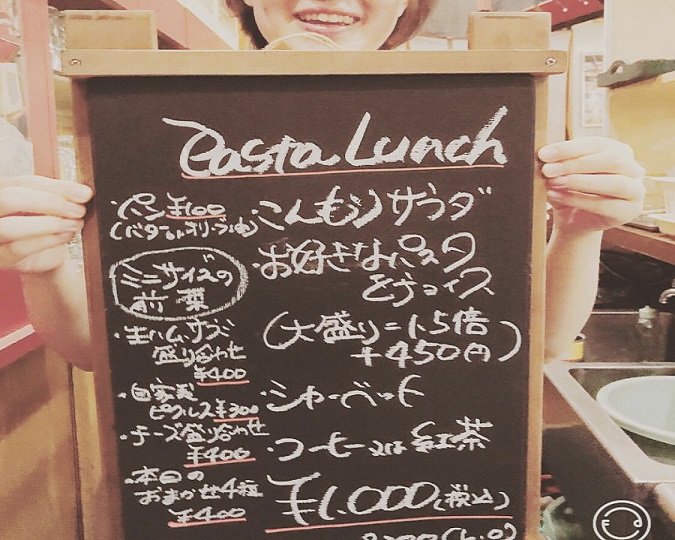 Pasta Lunch
・パン¥100
(バター or オリーブ油)
ミニサイズの
前菜
・生ハム、サラミ
盛り合わせ
¥400
・自家製
ピクルス¥300
・チーズ盛り合わせ
¥400
・本日の
おまかせ4種
¥400
・こんもりサラダ
・お好きなパスタ
をチョイス
(大盛り=1.5倍
+450円)
・シャーベット
・コーヒー又は紅茶
¥1,000(税込)